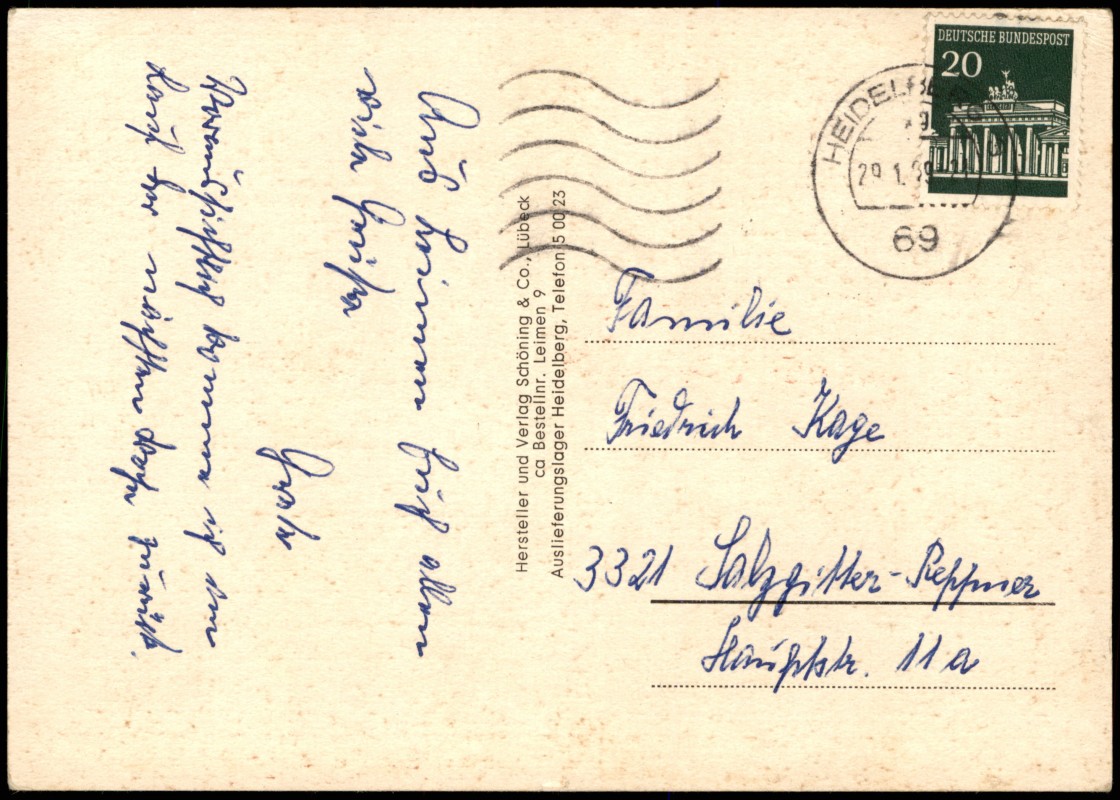 DEUTSCHE BUNDESPOST
20
HEIDELBERG
29.1.69
69
Aus Leimen Euch allen
viele Grüße
Voraussichtlich komme ich
der nächsten Woche zurück.
Hersteller und Verlag Schöning & Co., Lübeck
ca Bestellnr. Leimen 9
Auslieferungslager Heidelberg, Telefon 5 00 23
Familie
Friedrich Kage
3321 Salzgitter-Reppner
Hauptstr. 11a